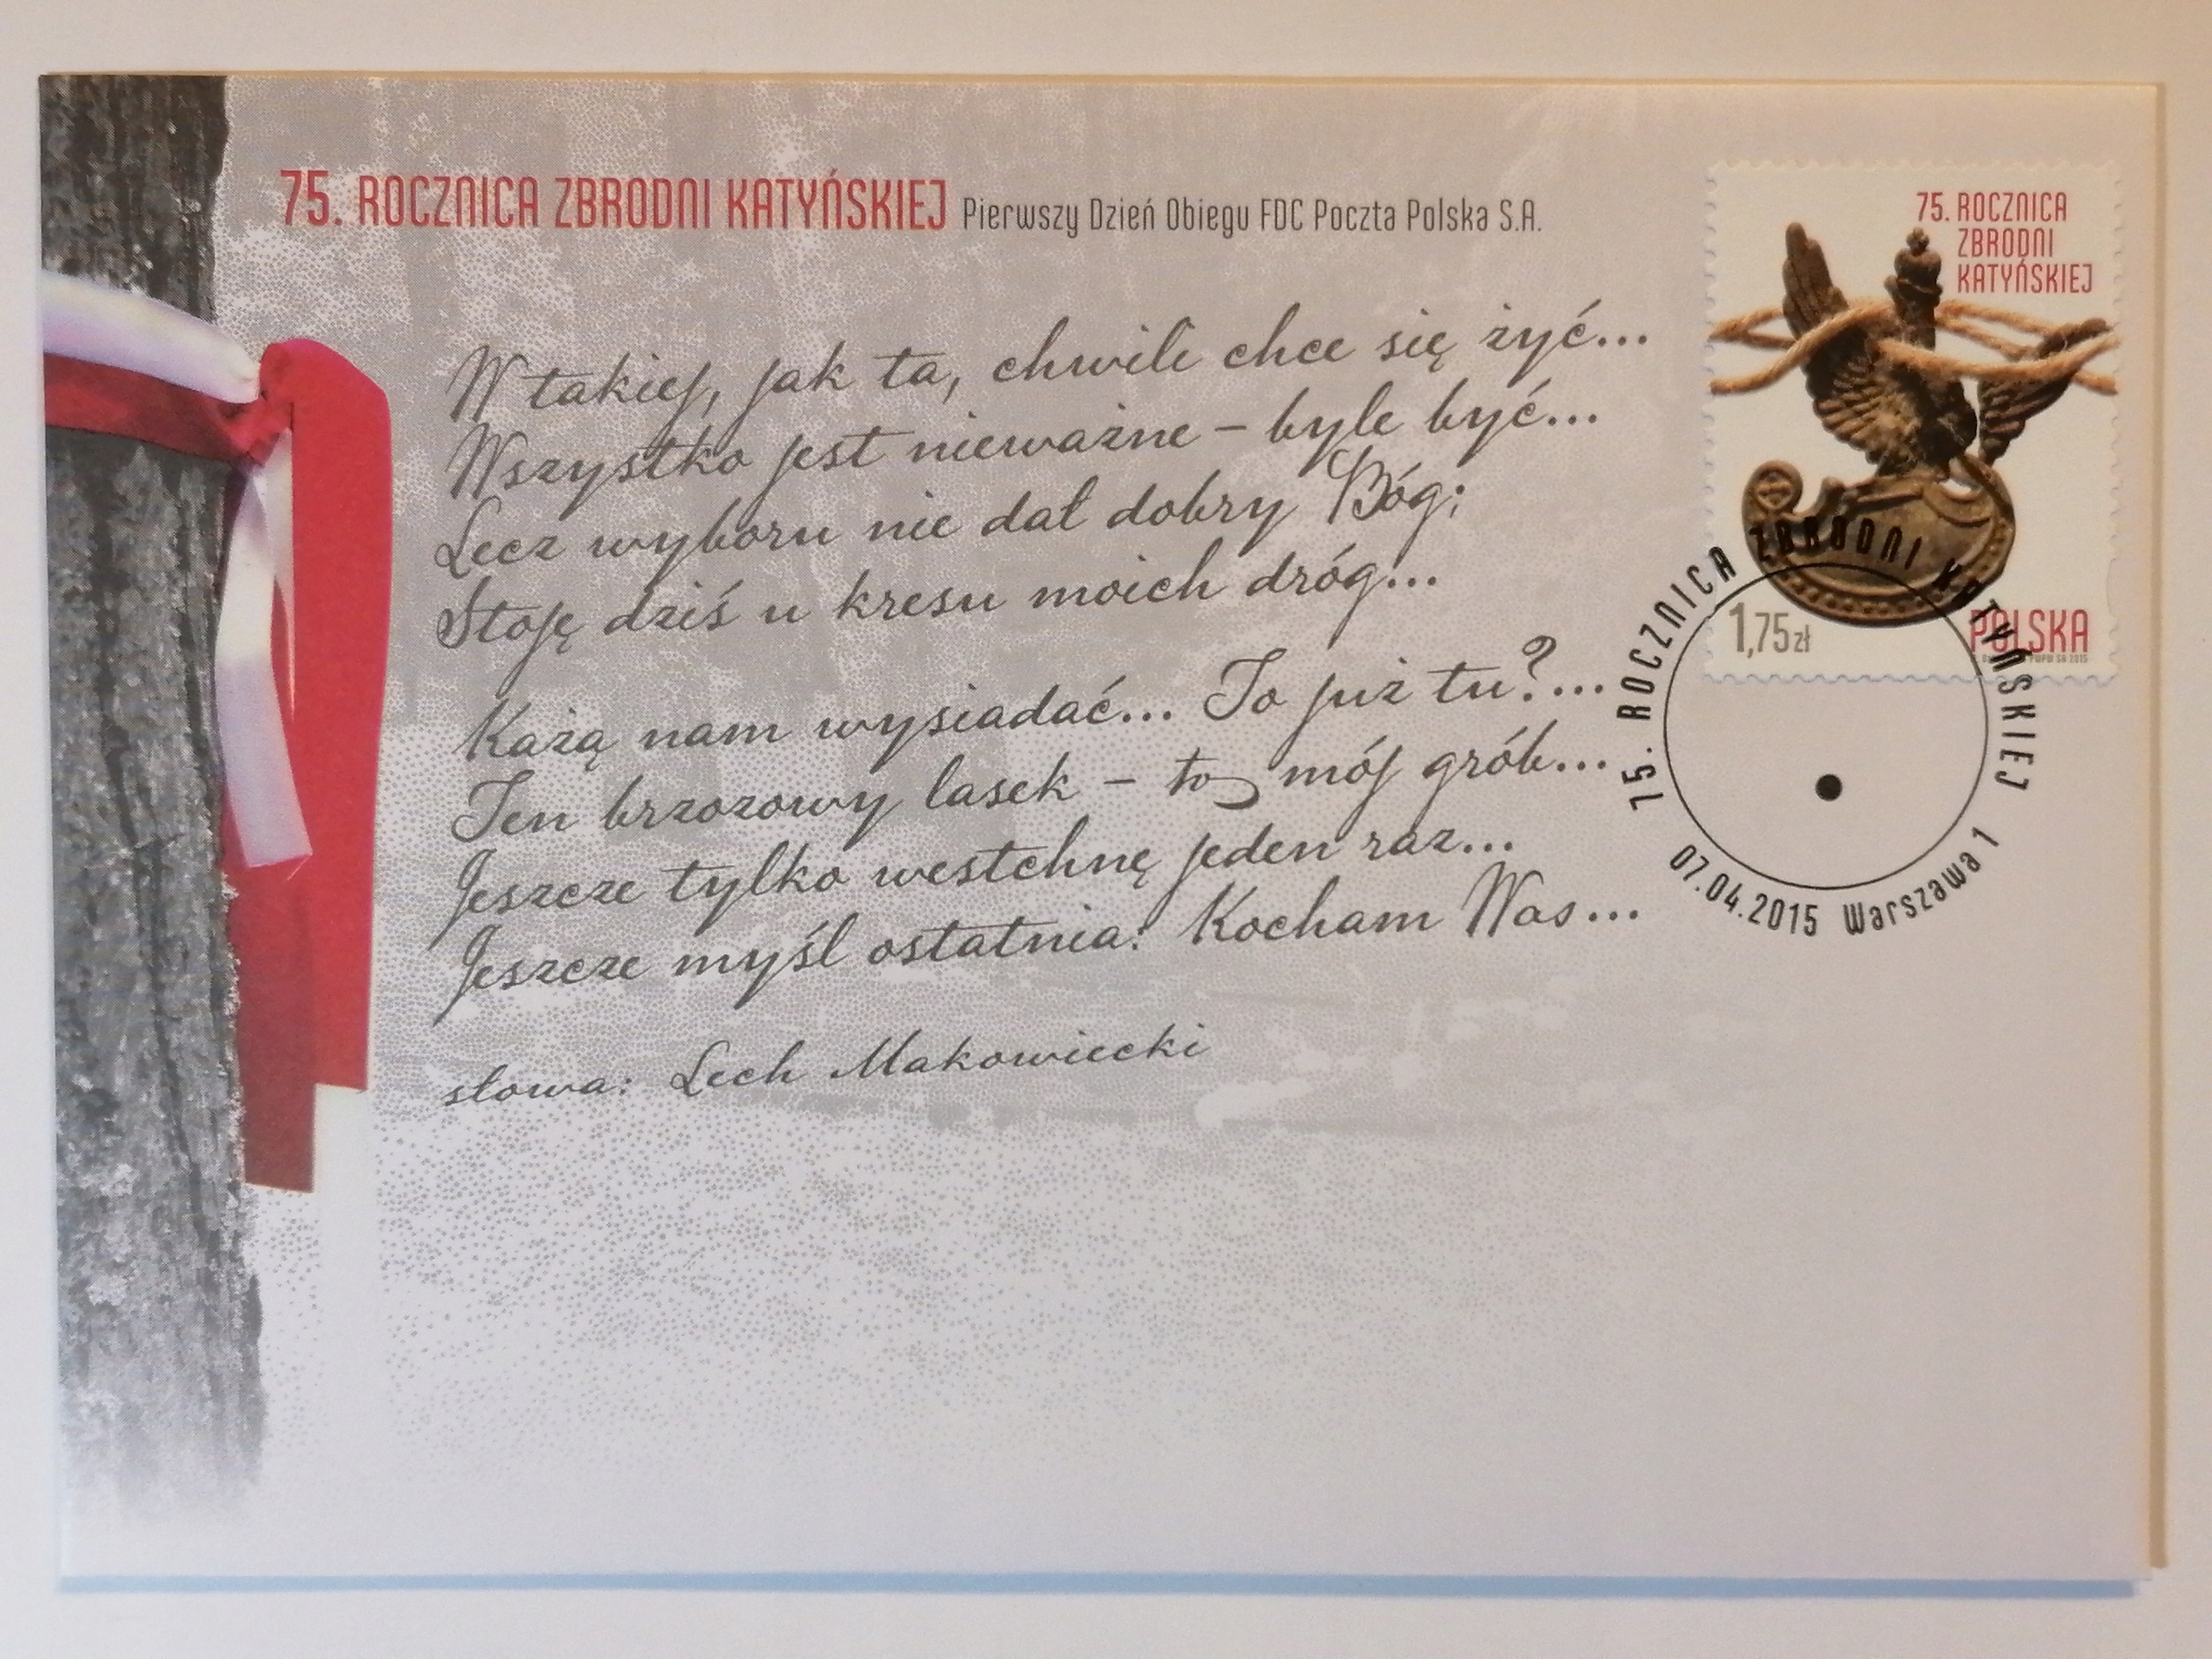 75. ROCZNICA ZBRODNI KATYŃSKIEJ Pierwszy Dzień Obiegu FDC Poczta Polska S.A.
W takiej, jak ta, chwili chce się żyć...
Wszystko jest nieważne – byle być...
Lecz wyboru nie dał dobry Bóg;
Stoję dziś u kresu moich dróg...
Każą nam wysiadać... To już tu?...
Ten brzozowy lasek – to mój grób...
Jeszcze tylko westchnę jeden raz...
Jeszcze myśl ostatnia: Kocham Was...
słowa: Lech Makowiecki
75. ROCZNICA
ZBRODNI
KATYŃSKIEJ
1,75 zł
POLSKA
PWPW SA 2015
75. ROCZNICA ZBRODNI KATYŃSKIEJ
07.04.2015 Warszawa 1